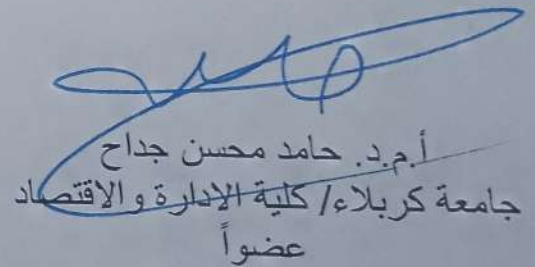 أ.م.د. حامد محسن جداح
جامعة كربلاء/ كلية الادارة والاقتصاد
عضواً